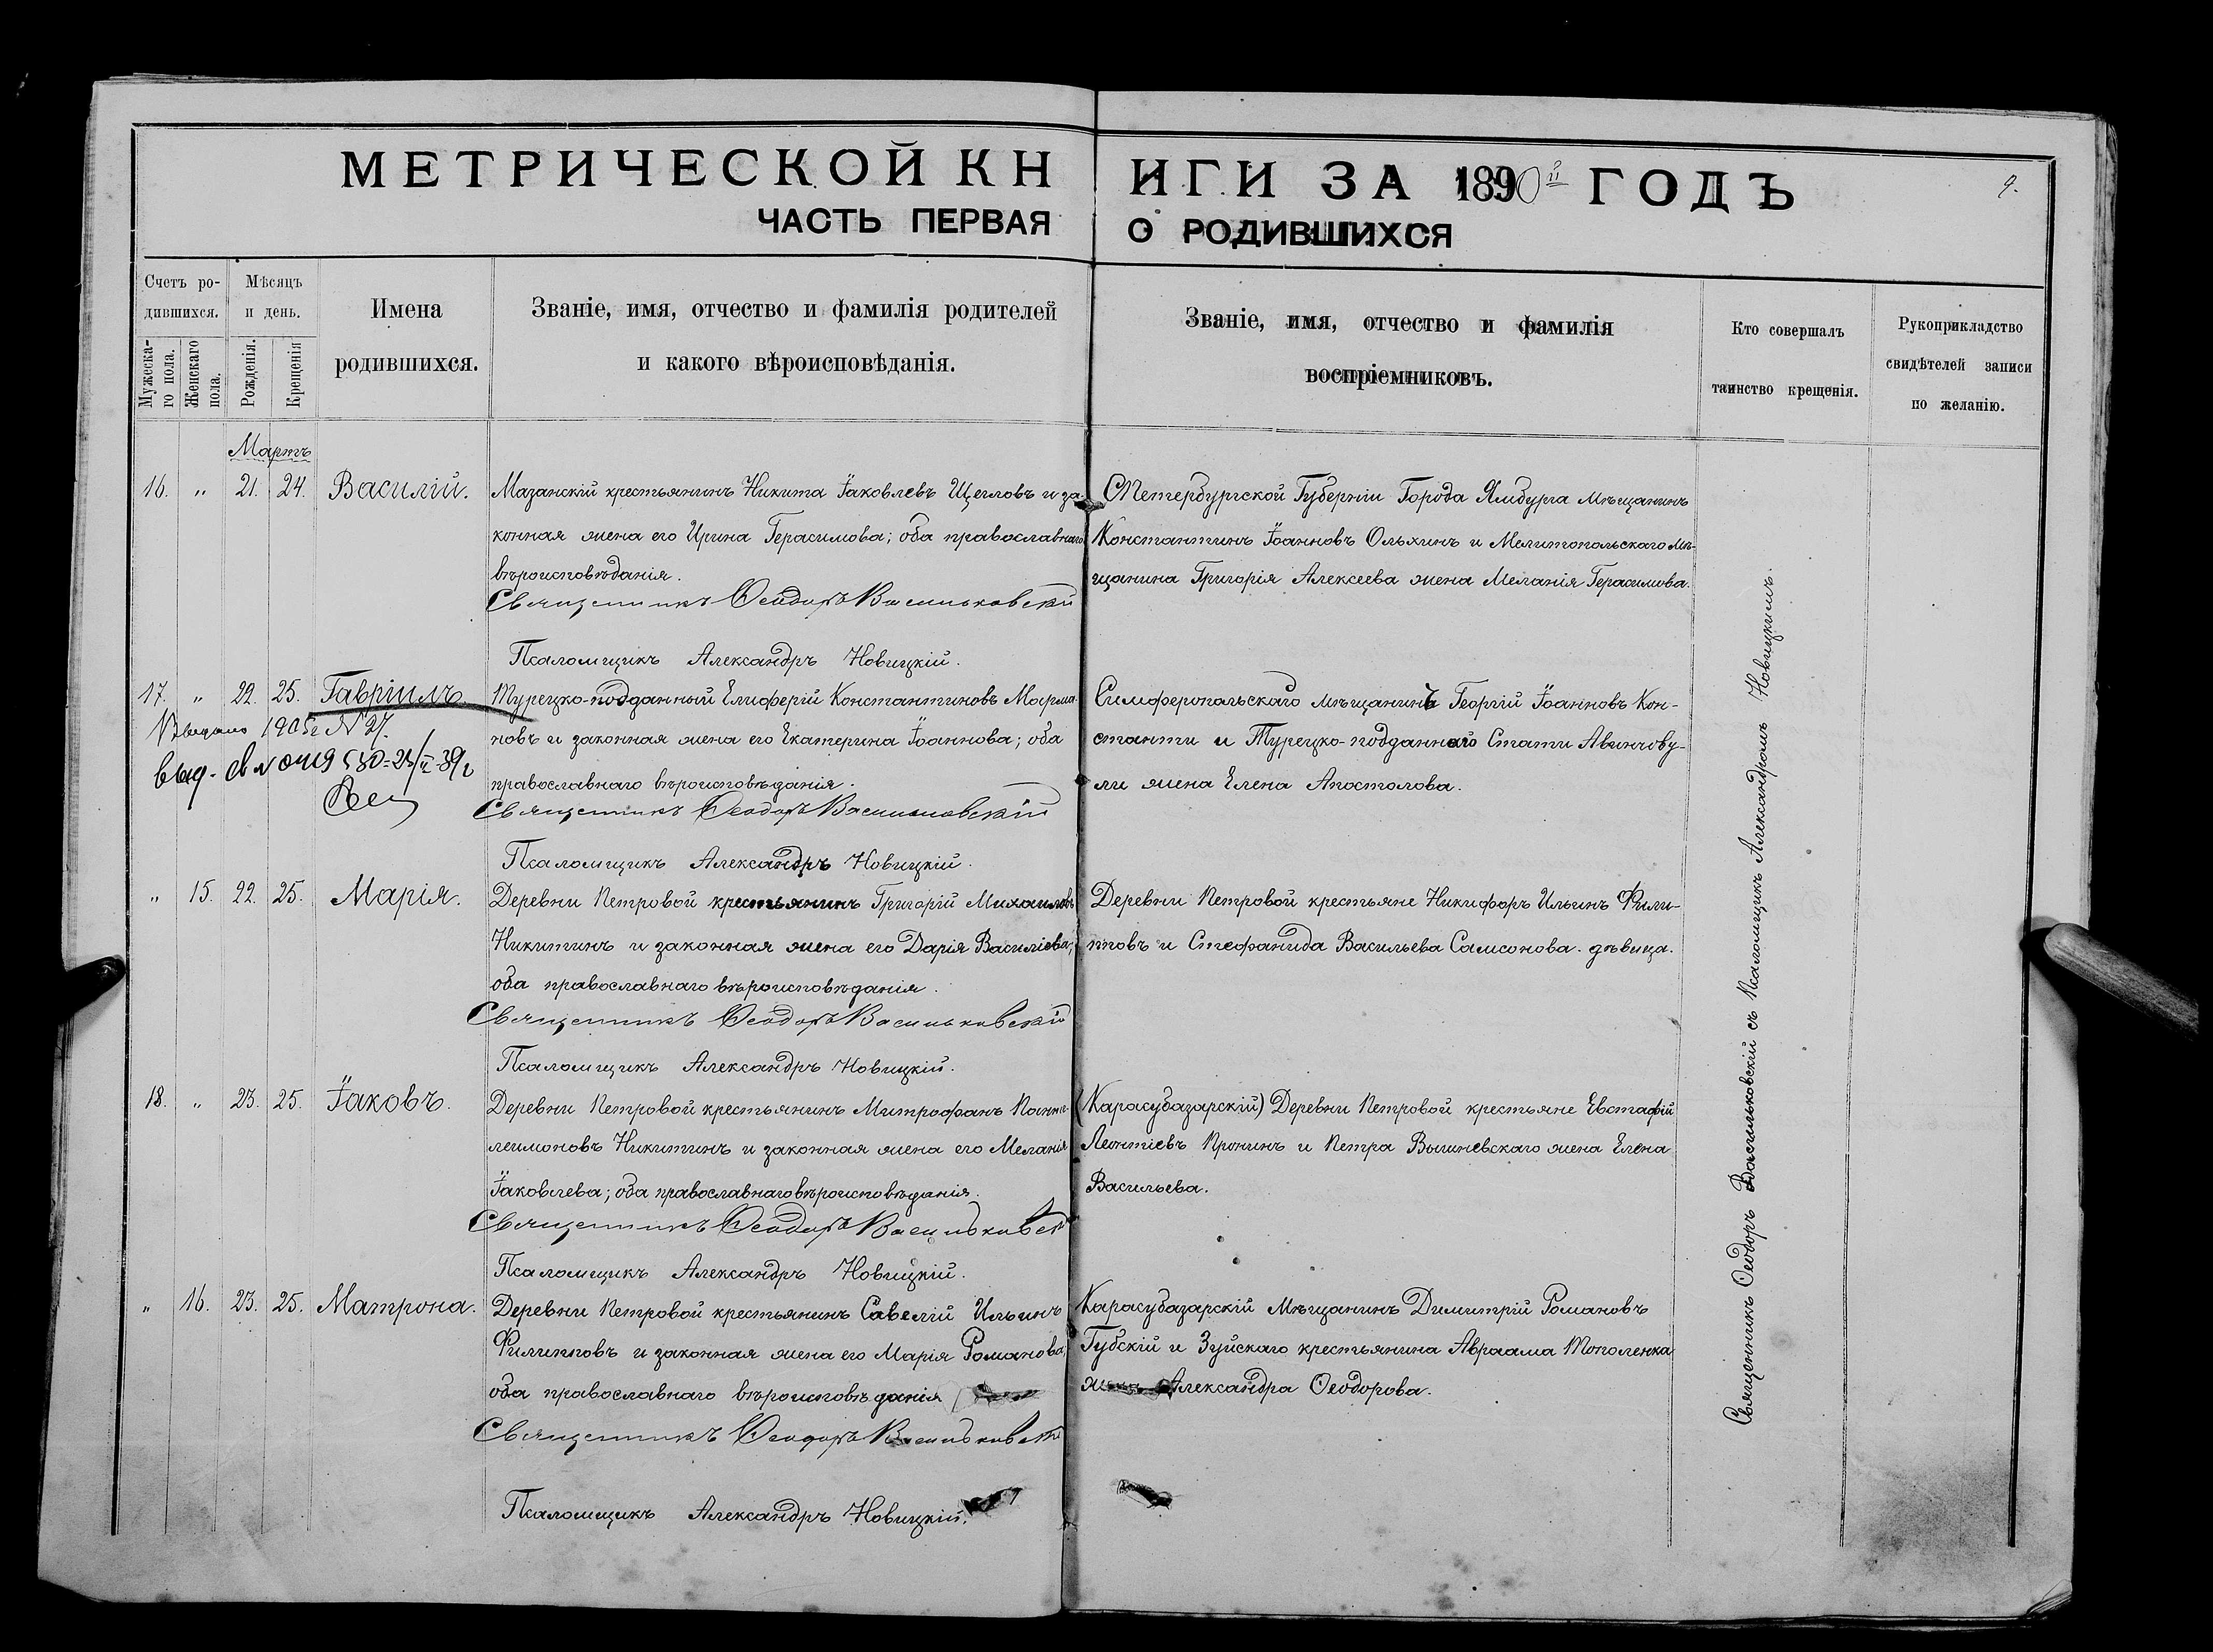 МЕТРИЧЕСКОЙ КНИГИ ЗА 1890й ГОДЪ
9.
ЧАСТЬ ПЕРВАЯ О РОДИВШИХСЯ
Счетъ ро-
дившихся.
Мужеска-
го пола.
Женскаго
пола.
Мѣсяцъ
и день.
Рожденія.
Крещенія
Имена
родившихся.
Званіе, имя, отчество и фамилія родителей
и какого вѣроисповѣданія.
Званіе, имя, отчество и фамилія
воспріемниковъ.
Кто совершалъ
таинство крещенія.
Рукоприкладство
свидѣтелей записи
по желанію.
Мартъ
16. " 21. 24. Василій.
Мазанскій крестьянинъ Никита Іаковлевъ Щегловъ и за-
конная жена его Ирина Герасимова; оба православнаго
вѣроисповѣданія.
Священникъ Ѳеодоръ Васильковскій
Псаломщикъ Александръ Новицкій.
СПетербургской Губерніи Города Ямбурга мѣщанинъ
Константинъ Іоанновъ Ольхинъ и Мелитопольскаго мѣ-
щанина Григорія Алексеева жена Меланія Герасимова.
17. " 22. 25. Гавріилъ
1905г N 27.
Турецко-подданный Елиферій Константиновъ
новъ и законная жена его Екатерина Іоаннова; оба
православнаго вѣроисповѣданія.
Священникъ Ѳеодоръ Васильковскій
Псаломщикъ Александръ Новицкій.
Симферопольскаго мѣщанинъ Георгій Іоанновъ Кон-
станти и Турецко-подданнаго Стати Авинчову-
ли жена Елена Апостолова.
" 15. 22. 25. Марія.
Деревни Петровой крестьянинъ Григорій Михаиловъ
Никитинъ и законная жена его Дарія Василіева;
оба православнаго вѣроисповѣданія.
Священникъ Ѳеодоръ Васильковскій
Псаломщикъ Александръ Новицкій.
Деревни Петровой крестьяне Никифоръ Ильинъ Фили-
пповъ и Стефанида Васильева Самсонова. дѣвица.
18. " 23. 25. Іаковъ.
Деревни Петровой крестьянинъ Митрофанъ Панте-
леимоновъ Никитинъ и законная жена его Меланія
Іаковлева; оба православнаго вѣроисповѣданія.
Священникъ Ѳеодоръ Васильковскій
Псаломщикъ Александръ Новицкій.
(Карасубазарскій) Деревни Петровой крестьяне Евстафій
Леонтіевъ Пронинъ и Петра Вышневскаго жена Елена
Васильева.
" 16. 23. 25. Матрона.
Деревни Петровой крестьянинъ Савелій Ильинъ
Филипповъ и законная жена его Марія Романова;
оба православнаго вѣроисповѣданія
Священникъ Ѳеодоръ Васильковскій
Псаломщикъ Александръ Новицкій.
Карасубазарскій Мѣщанинъ Димитрій Романовъ
Губскій и Зуйскаго крестьянина Авраама Тополенка
жена Александра Ѳеодорова.
Священникъ Ѳеодоръ Васильковскій съ Псаломщикъ Александромъ Новицкимъ.